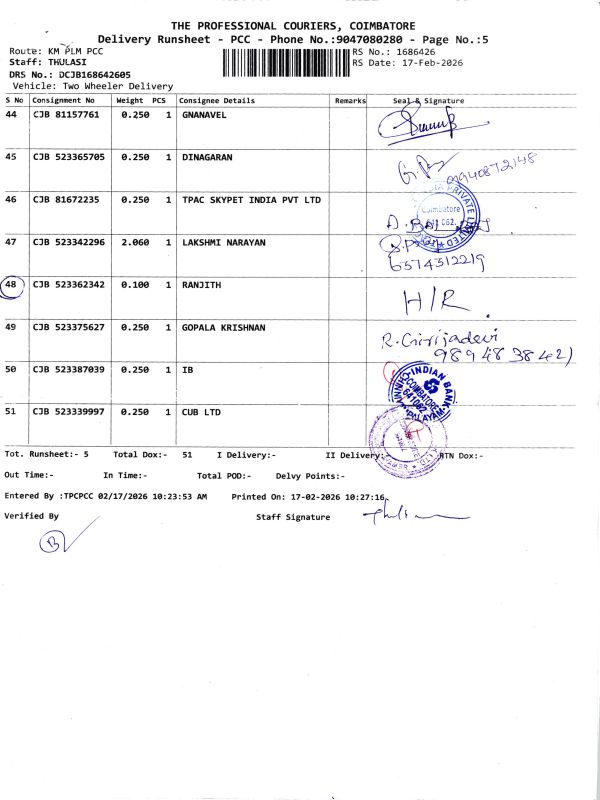 THE PROFESSIONAL COURIERS, COIMBATORE
Delivery Runsheet - PCC - Phone No.:9047080280 - Page No.:5
Route: KM PLM PCC
RS No.: 1686426
Staff: THULASI
RS Date: 17-Feb-2026
DRS No.: DCJB168642605
Vehicle: Two Wheeler Delivery
S No Consignment No Weight PCS Consignee Details Remarks Seal & Signature
44 CJB 81157761 0.250 1 GNANAVEL
45 CJB 523365705 0.250 1 DINAGARAN 09940872148
46 CJB 81672235 0.250 1 TPAC SKYPET INDIA PVT LTD
Coimbatore
47 CJB 523342296 2.060 1 LAKSHMI NARAYAN
6374312219
48 CJB 523362342 0.100 1 RANJITH H/R
49 CJB 523375627 0.250 1 GOPALA KRISHNAN R. Girijadevi
9894838421
50 CJB 523387039 0.250 1 IB INDIAN BANK
COIMBATORE
641062
51 CJB 523339997 0.250 1 CUB LTD
Tot. Runsheet:- 5 Total Dox:- 51 I Delivery:- II Delivery:- RTN Dox:-
Out Time:- In Time:- Total POD:- Delvy Points:-
Entered By :TPCPCC 02/17/2026 10:23:53 AM Printed On: 17-02-2026 10:27:16
Verified By Staff Signature